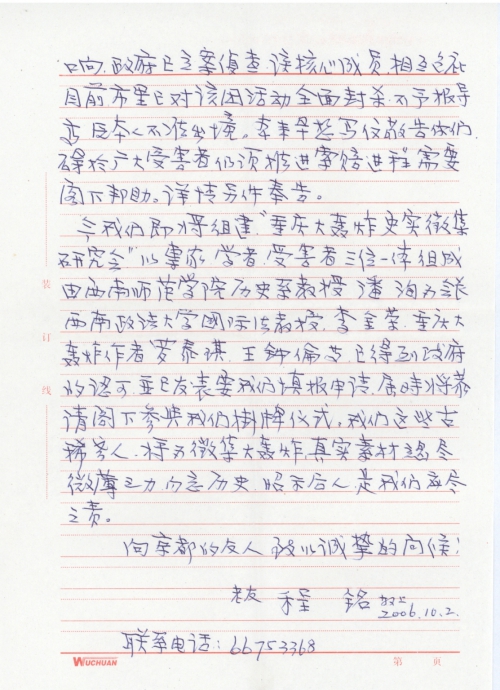 响,政府已立案侦查,该核心成员,相互包庇
目前市里已对该团活动全面封杀,不予报导
本人不准出境。本来早想写信敬告你们,
碍于广大受害者仍须推进索赔进程需要
阁下帮助。详情另件奉告。
今我们即将组建"重庆大轰炸史实徵集
研究会"以专家,学者,受害者三位一体组成
由西南师范学院历史系教授潘洵为会长
西南政法大学國际法教授,李金荣,重庆大
轰炸作者罗泰琪,王钟伦等已得到政府
的认可,並已发表要我们填报申请,届時将恭
请阁下参與我们掛牌仪式,我们这些古
稀老人,将为徵集大轰炸,真实素材竭尽
微薄之力,勿忘历史,昭示后人,是我们应尽
之责。
向京都的友人致以诚挚的问候!
友 程 铭 敬上
2006.10.2.
联系电话:66753368
装
订
线
WUCHUAN
第 页